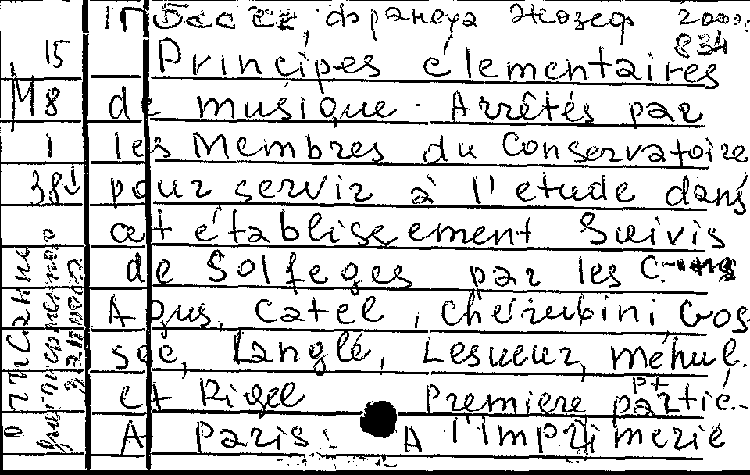 Франсуа Жозеф
15 Principes élementaires
М8 de musique. Arrêtés par
1 les Membres du Conservatoire
381 pour servir à l'etude dans
cet établissement Suivis
de Solfeges par les
Agus, Catel, Cherubini, Gos
sec, Langlé, Lesueur, méhul.
et Rigel Premiere partie.
A Paris: A l'Imprimerie